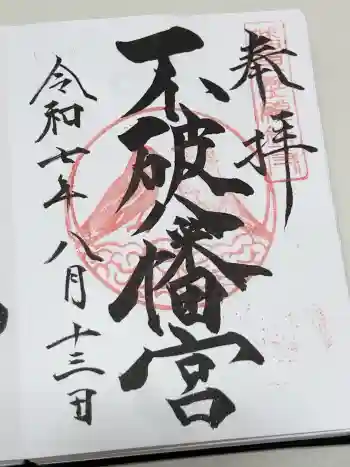 奉拝
不破八幡宮
令和七年八月十三日